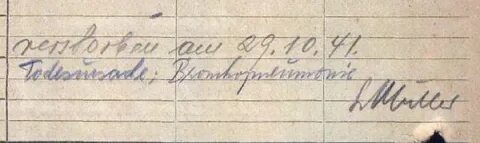 verstorben am 29.10.41.
Todesursache: Bronchopneumonie
Müller